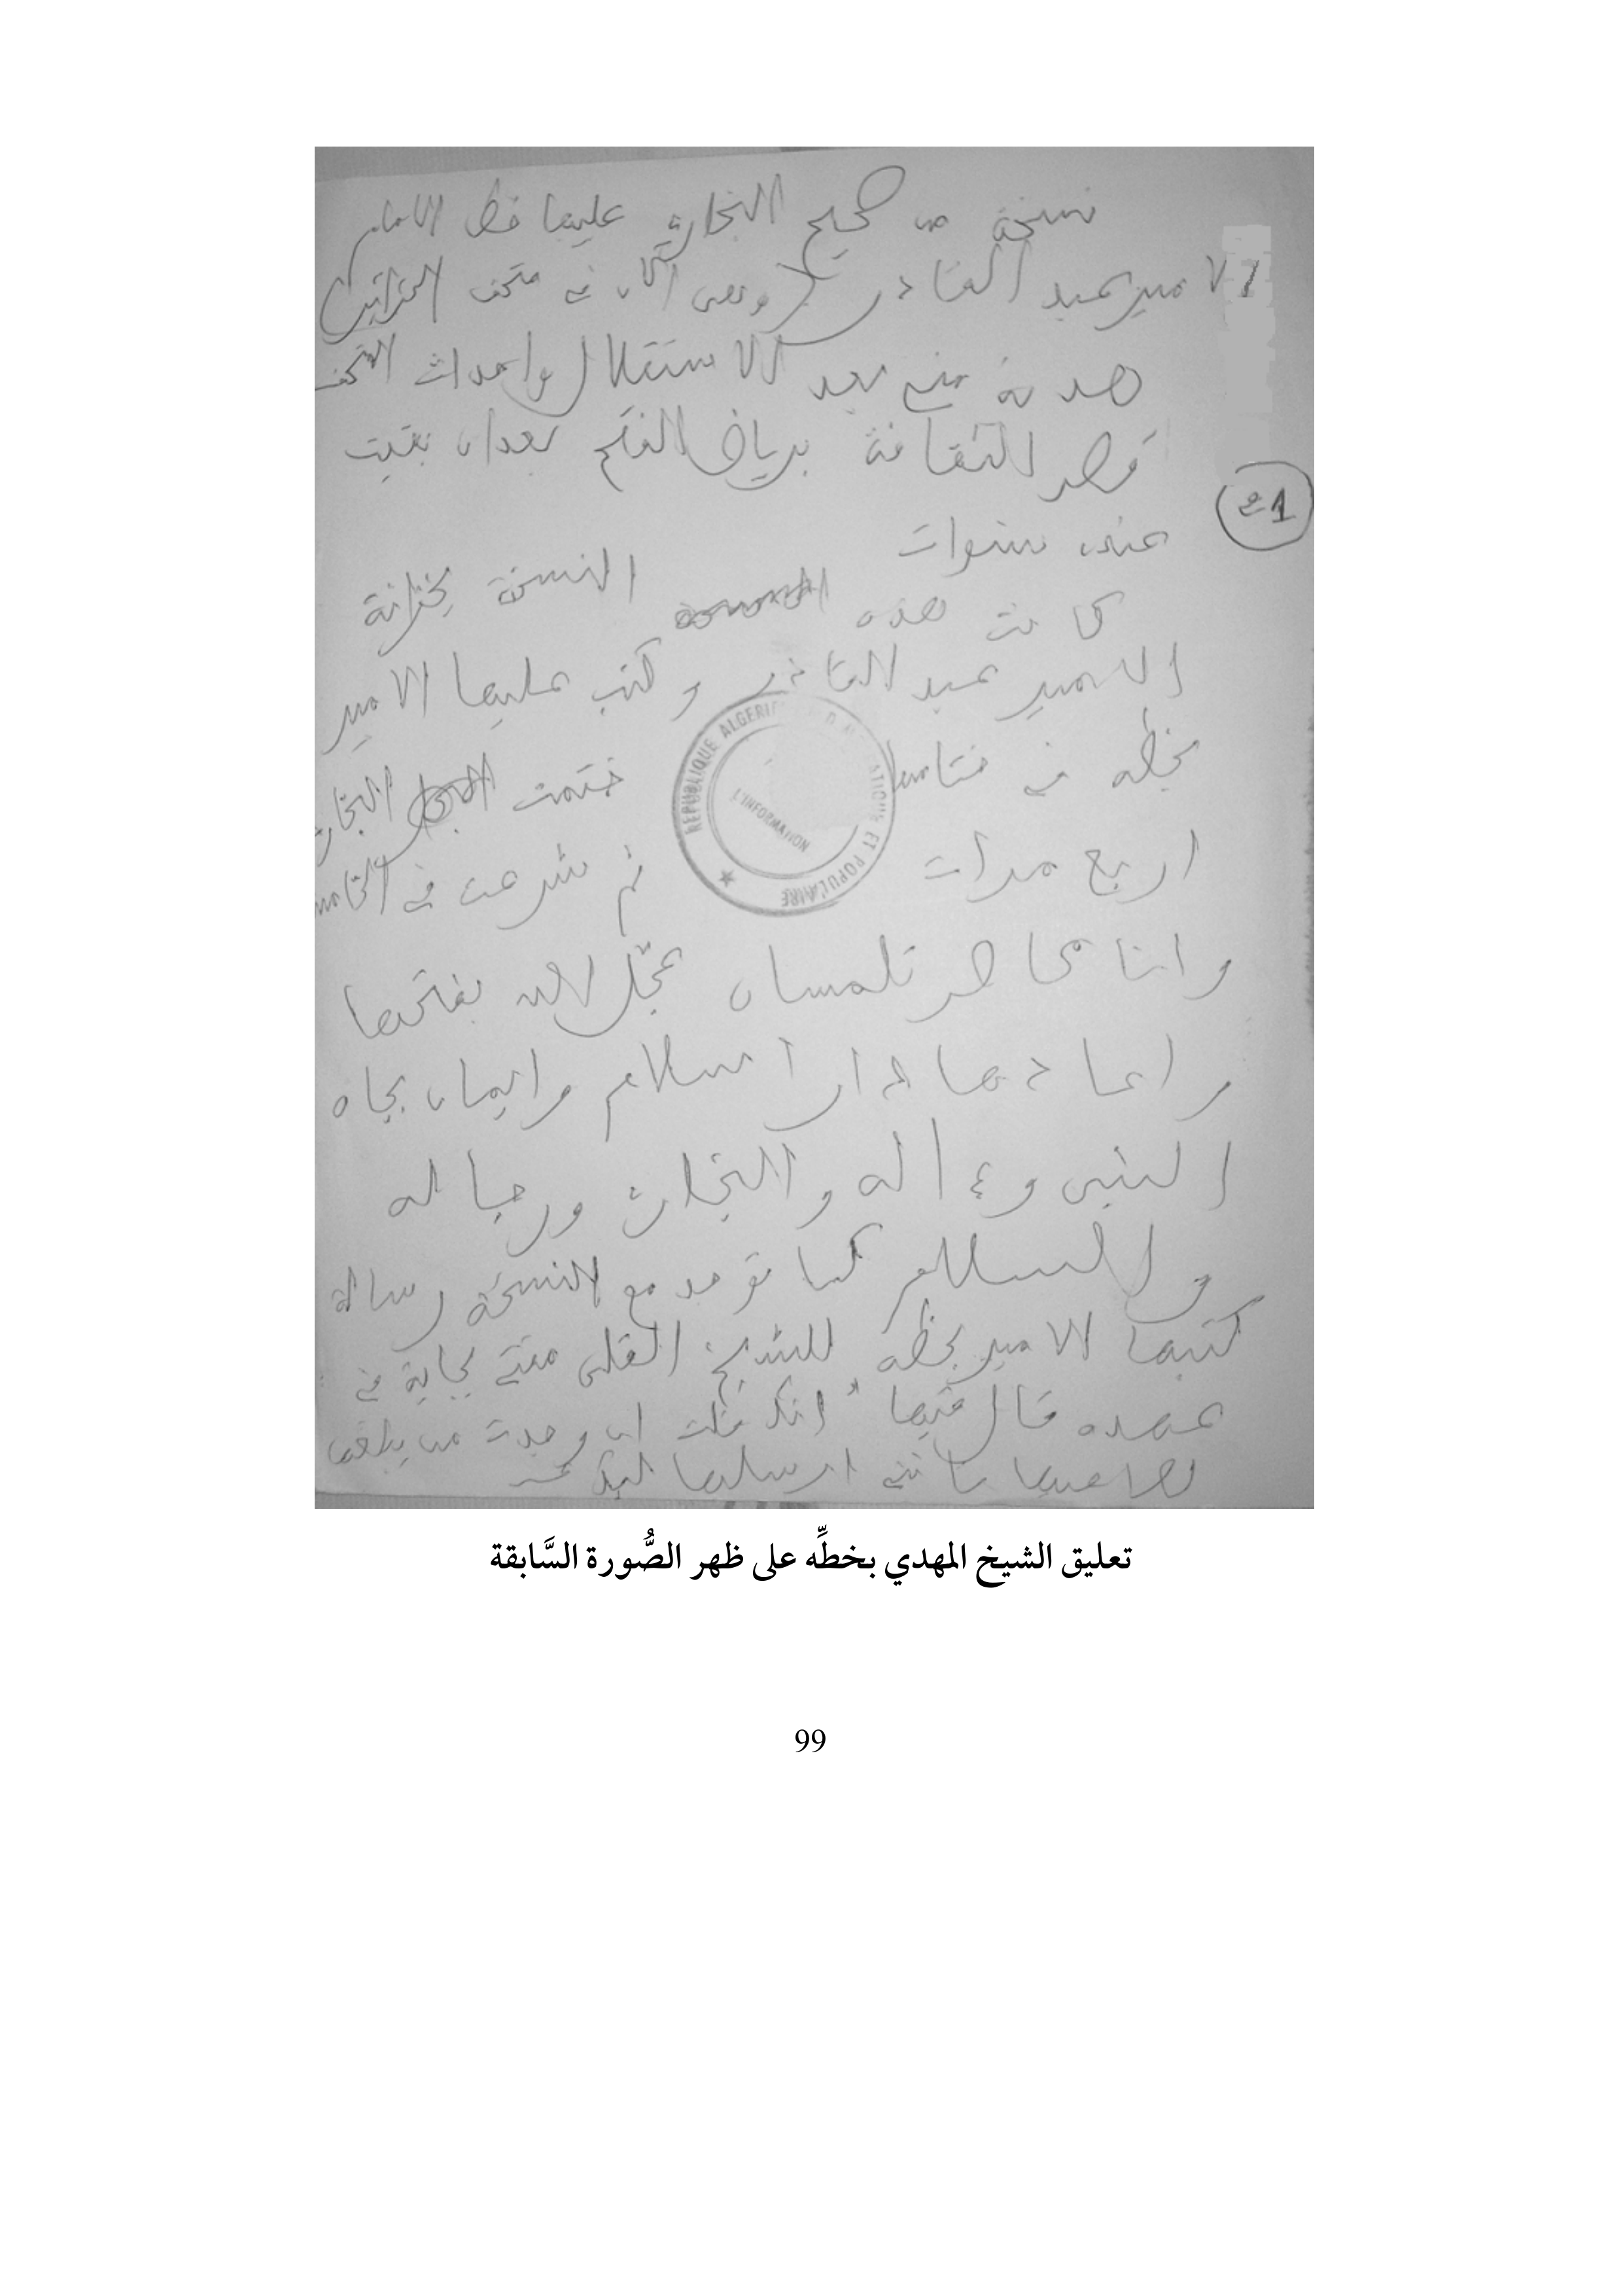 نسخة من صحيح البخاري عليها خط الامام
الامير عبد القادر (وهي الآن في متحف الجزائر)
هدية مني بعد الاستقلال واحداث المتحف
قصر الثقافة برياض الفتح بعد ان بقيت
عندي سنوات
كانت هذه النسخة بخزانة
الامير عبد القادر وكتب عليها الامير
بخطه في ختامها ختمت البخاري
اربع مرات ثم شرعت في الخامسة
وانا محاصر تلمسان عجّل الله بفتحها
واعادها دار اسلام وايمان بجاه
النبي وءاله والبخاري ورجاله
والسلام كما توجد مع النسخة رسالة
كتبها الامير بخطه للشيخ القلي مفتي بجاية في
عهده قال فيها " انك قلت ان وجدت من
ارسلها اليك
21
REPUBLIQUE ALGERIENNE DEMOCRATIQUE ET POPULAIRE
L'INFORMATION
تعليق الشيخ المهدي بخطِّه على ظهر الصُّورة السَّابقة
99